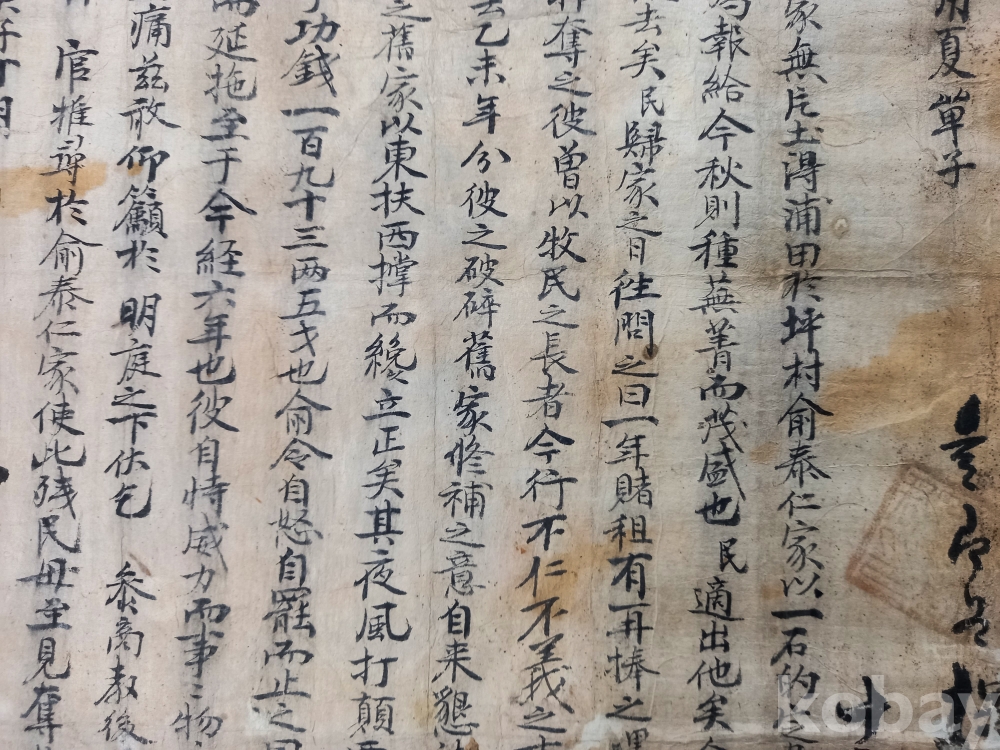 夏單子
家無片土得浦田於坪村俞泰仁家以一石的
報給今秋則種蕪菁而茂盛也民適出他矣
去矣民歸家之日往問之曰一年賭租有再捧之
奪之彼曾以牧民之長者今行不仁不義之
去乙未年分彼之破碎舊家修補之意自来懇
之舊家以東扶西撑而纔立正矣其夜風打顛
功錢一百九十三两五戔也俞令自怒自罷而止之
而延拖至于今経六年也彼自恃威力而事〻物
痛茲敢仰籲於 明庭之下伏乞 叅商教後
官推尋於俞泰仁家使此残民毋至見奪
kobay